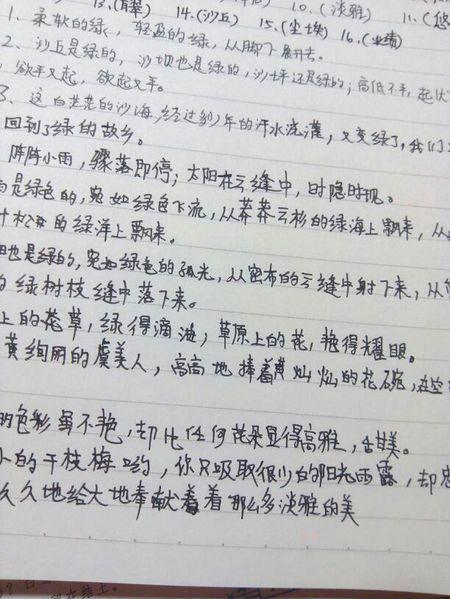 13.(肖像) 14.(沙丘) 15.(尘埃) 10.(淡雅) 11.(悠
16.(业绩)
1、柔软的绿,轻盈的绿,从脚下展开去。
2、沙丘是绿的,沙坝也是绿的,沙坪还是绿的;高低不平,起伏
欲平又起,欲起又平。
3、这白茫茫的沙海,经过多少年的汗水浇灌,又变绿了,我们
回到了绿的故乡。
阵阵小雨,骤落即停;太阳在云缝中,时隐时现。
雨是绿色的,宛如绿色飞流,从莽莽云杉的绿海上飘来,从
叶松的绿洋上飘来。
阳也是绿的,宛如绿色的弧光,从密布的云缝中射下来,从
的绿树枝缝中落下来。
上的花草,绿得滴油;草原上的花,艳得耀眼。
黄绚丽的虞美人,高高地捧着黄灿灿的花碗,在空
的色彩虽不艳,却比任何花朵显得高雅,甜美。
小的干枝梅哟,你只吸取很少的阳光雨露,却
久久地给大地奉献着那么多淡雅的美